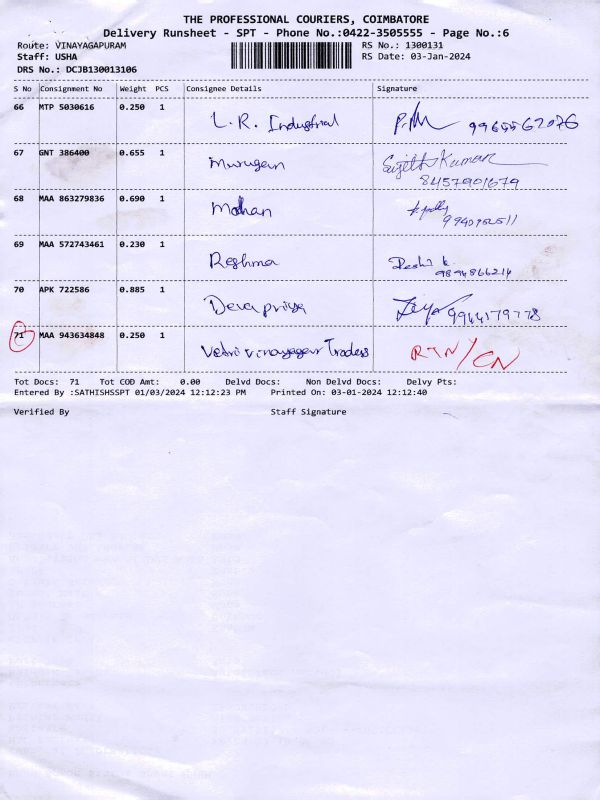 THE PROFESSIONAL COURIERS, COIMBATORE
Delivery Runsheet - SPT - Phone No.:0422-3505555 - Page No.:6
Route: VINAYAGAPURAM RS No.: 1300131
Staff: USHA RS Date: 03-Jan-2024
DRS No.: DCJB130013106
S No Consignment No Weight PCS Consignee Details Signature
66 MTP 5030616 0.250 1 L.R. Industrial
67 GNT 386400 0.655 1 Murugan Sujith Kumar
8457901679
68 MAA 863279836 0.690 1 Mohan
69 MAA 572743461 0.230 1 Reshma
9894866214
70 APK 722586 0.885 1 Devapriya 9944179778
71 MAA 943634848 0.250 1 Vetri Vinayagar Traders RTN/CN
Tot Docs: 71 Tot COD Amt: 0.00 Delvd Docs: Non Delvd Docs: Delvy Pts:
Entered By :SATHISHSSPT 01/03/2024 12:12:23 PM Printed On: 03-01-2024 12:12:40
Verified By Staff Signature